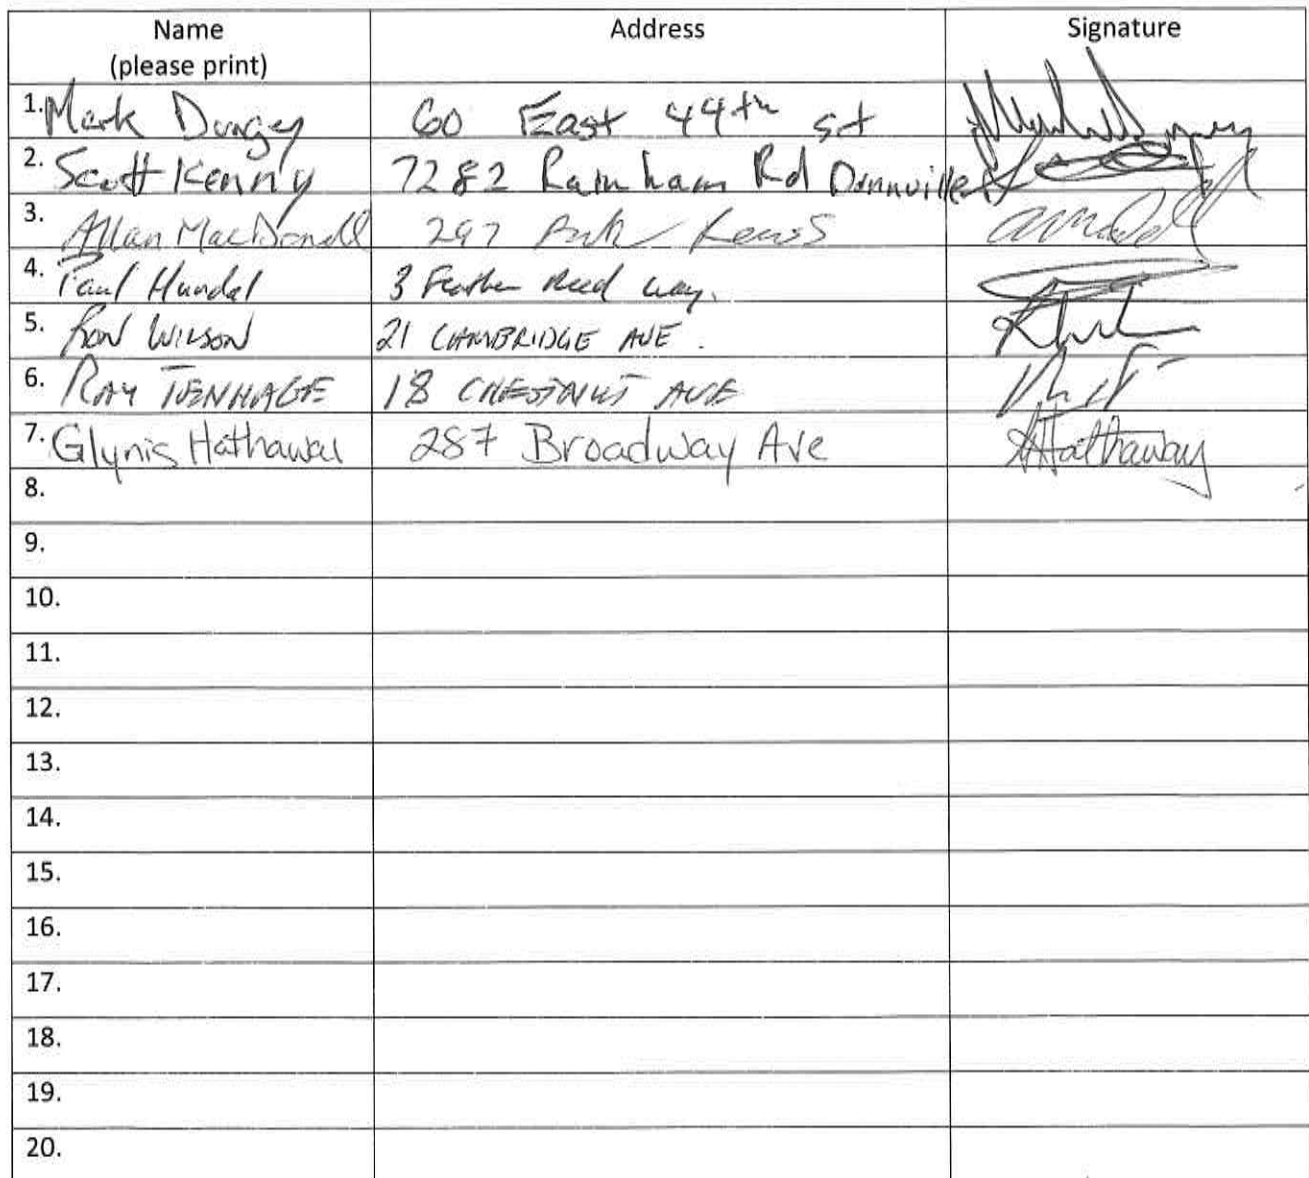 Name Address Signature
(please print)
1. Mark Dungey 60 East 44th st
2. Scott Kenny 7282 Rainham Rd Dunnville
3. Allan MacDonell 297
4. Paul Hundal 3 Feather Reed way.
5. Ron Wilson 21 CAMBRIDGE AVE.
6. RAY TENHAGE 18 CHESTNUT AVE
7. Glynis Hathaway 287 Broadway Ave Hathaway
8.
9.
10.
11.
12.
13.
14.
15.
16.
17.
18.
19.
20.